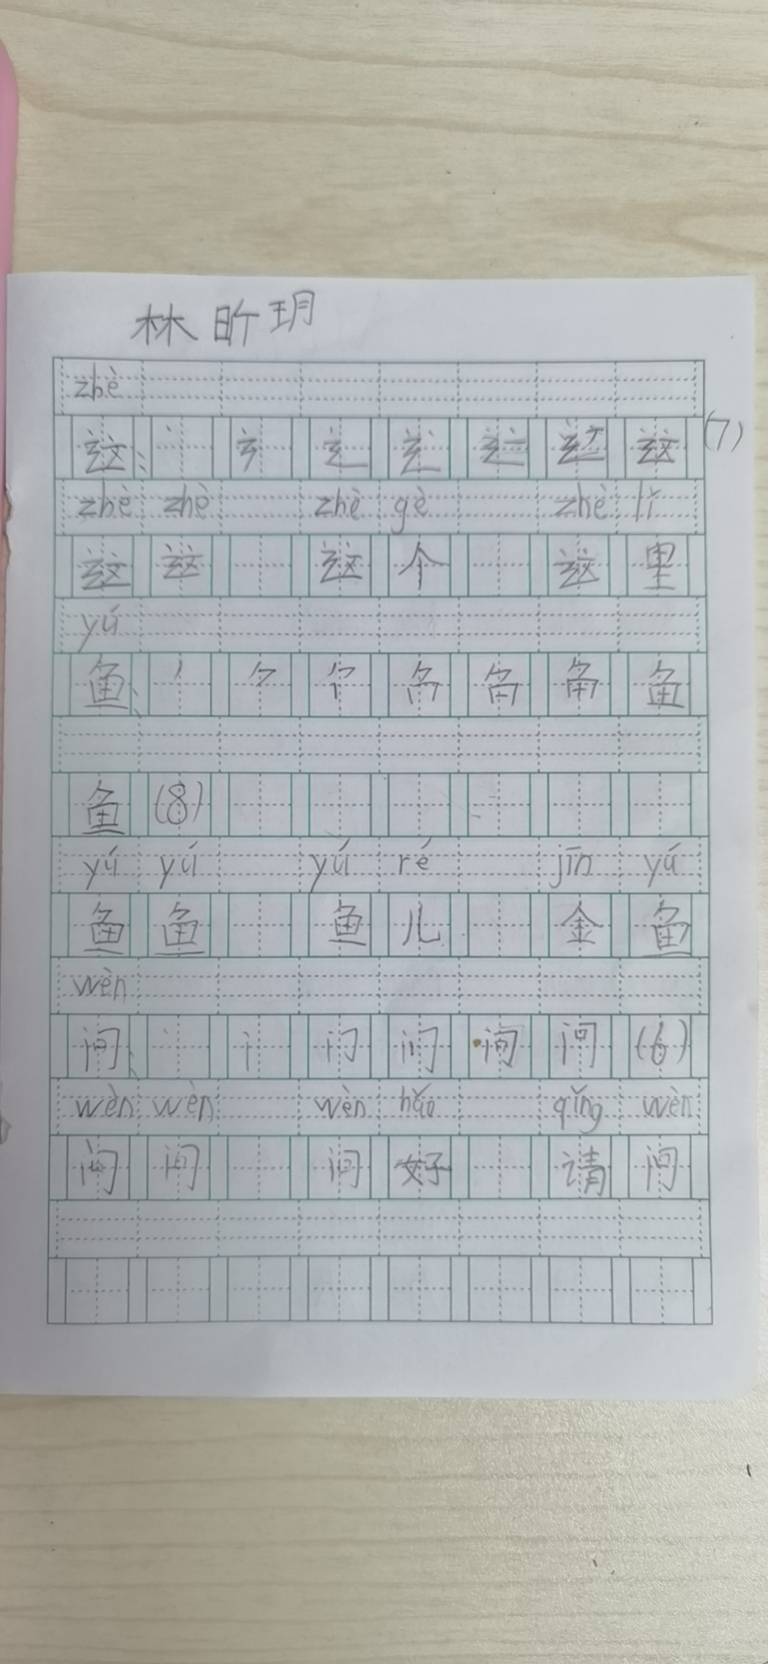 林昕玥
zhè
这、 丶 讠 辶 辶 这 这 这 (7)
zhè zhè zhè gè zhè lǐ
这 这 这 个 这 里
yú
鱼、 丿 ⺈
鱼
鱼 (8)
yú yú yú ré jīn yú
鱼 鱼 鱼 儿 金 鱼
wèn
问、 丶 门 门 问 问 (6)
wèn wèn wèn hǎo qǐng wèn
问 问 问 好 请 问